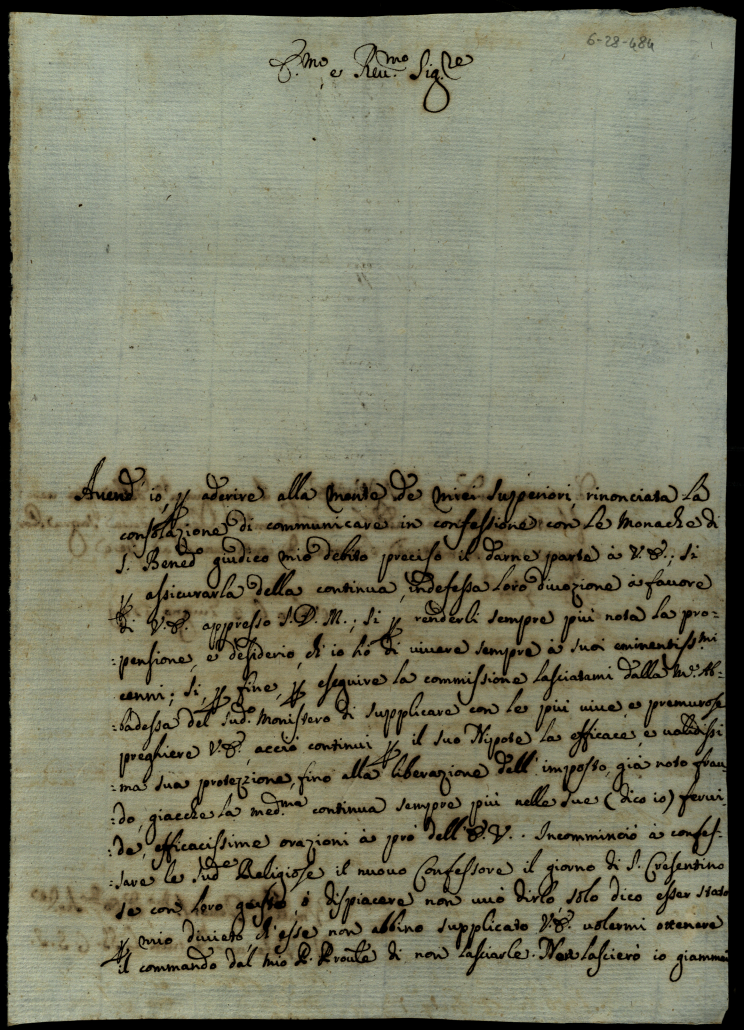 6-28-484
E.mo e Reu.mo Sig.re
Auend' io, p aderire alla mente de miei Superiori, rinonciata la
consolazione di communicare in confessione con le Monache di
S. Bened.o giudico mio debito preciso il darne parte à V.E.; si
p assicurarla della continua, indefessa loro diuozione à fauore
di V.E. appresso S.D.M.; si p renderli sempre più nota la pro-
-pensione, e desiderio, ch' io hò di viuere sempre à suoi eminentiss.mi
cenni; si, p fine, p eseguire la commissione lasciatami dalla M.e Ab-
-badessa del Sud.o Monistero di supplicare con le più viue, e premurose
preghiere V.E., acciò continui p il suo Nipote la efficace, e ualidissi
-ma sua protezzione, fino alla liberazione dell' imposto, già noto frau-
-do, giacche la med.ma continua sempre più nelle sue (dico io) ferui-
-de, efficacissime orazioni à prò dell' E.V.. Incomminciò à confes-
-sare le Sud.e Religiose il nuouo Confessore il giorno di S. Cresentino
se con loro gusto, ò dispiacere non uuò dirlo solo dico esser stato
p mio diuieto, ch' esse non abbino supplicato V.E. uolermi ottenere
il commando dal mio P. Prouĩle di non lasciarle. lascierò io giammai